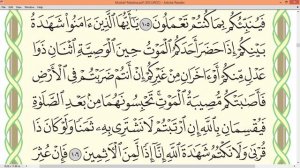 Mushaf Madina.pdf (SECURED) - Adobe Reader
فَيُنَبِّئُكُم بِمَا كُنتُمْ تَعْمَلُونَ ١٠٥ يَٰٓأَيُّهَا ٱلَّذِينَ ءَامَنُوا۟ شَهَٰدَةُ
بَيْنِكُمْ إِذَا حَضَرَ أَحَدَكُمُ ٱلْمَوْتُ حِينَ ٱلْوَصِيَّةِ ٱثْنَانِ ذَوَا
عَدْلٍ مِّنكُمْ أَوْ ءَاخَرَانِ مِنْ غَيْرِكُمْ إِنْ أَنتُمْ ضَرَبْتُمْ فِى ٱلْأَرْضِ
فَأَصَٰبَتْكُم مُّصِيبَةُ ٱلْمَوْتِ ۚ تَحْبِسُونَهُمَا مِنۢ بَعْدِ ٱلصَّلَوٰةِ
فَيُقْسِمَانِ بِٱللَّهِ إِنِ ٱرْتَبْتُمْ لَا نَشْتَرِى بِهِۦ ثَمَنًا وَلَوْ كَانَ ذَا
قُرْبَىٰ ۙ وَلَا نَكْتُمُ شَهَٰدَةَ ٱللَّهِ إِنَّآ إِذًا لَّمِنَ ٱلْءَاثِمِينَ ١٠٦ فَإِنْ عُثِرَ